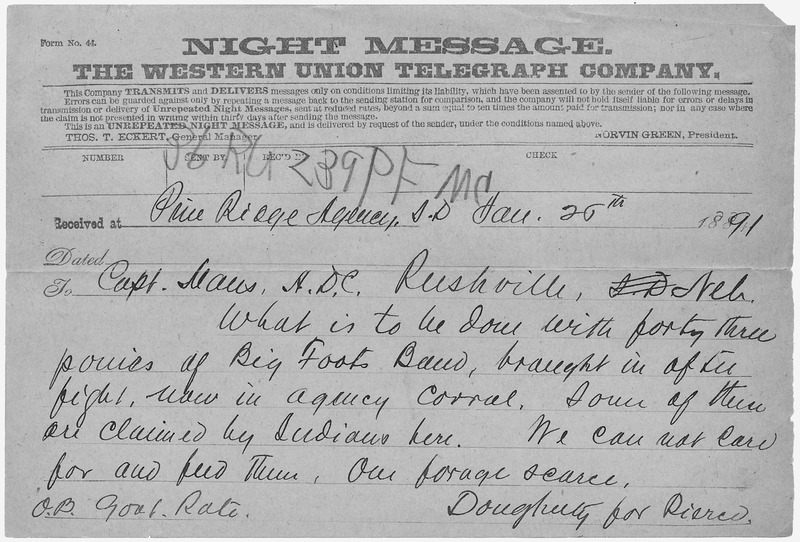 Form No. 44.
NIGHT MESSAGE.
THE WESTERN UNION TELEGRAPH COMPANY.
This Company TRANSMITS and DELIVERS messages only on conditions limiting its liability, which have been assented to by the sender of the following message.
Errors can be guarded against only by repeating a message back to the sending station for comparison, and the company will not hold itself liable for errors or delays in
transmission or delivery of Unrepeated Night Messages, sent at reduced rates, beyond a sum equal to ten times the amount paid for transmission; nor in any case where
the claim is not presented in writing within thirty days after sending the message.
This is an UNREPEATED NIGHT MESSAGE, and is delivered by request of the sender, under the conditions named above.
THOS. T. ECKERT, General Manager. NORVIN GREEN, President.
NUMBER SENT BY REC'D BY CHECK
239 PF
Received at Pine Ridge Agency, S.D Jan. th 1891
Dated
To Capt. Maus, A.D.C. Rushville, S.D. Neb.
What is to be done with forty three
ponies of Big Foots Band, brought in after
fight, now in agency corral. Some of them
are claimed by Indians here. We can not care
for and feed them, Our forage scarce,
O.B. Govt. Rate. Dougherty for Pierce.